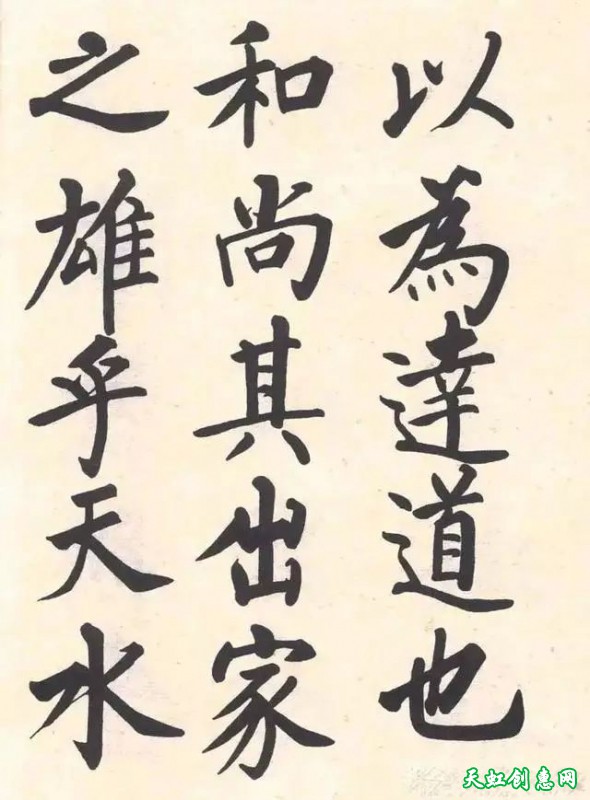 以為達道也
和尚其出家
之雄乎天水
天虹创惠网